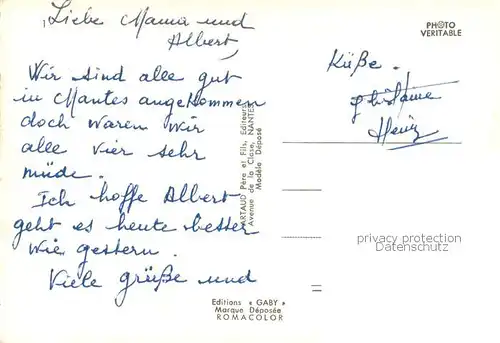 Liebe Mama und
Albert,
Wir sind alle gut
in Nantes angekommen
doch waren wir
alle vier sehr
müde.
Ich hoffe Albert
geht es heute besser
wie gestern.
Viele grüße und
Küße.
Heinz
PHOTO
VERITABLE
ARTAUD Père et Fils, Editeurs
Avenue de la Close, NANTES
Modèle Déposé
privacy protection
Datenschutz
Editions « GABY »
Marque Déposée
ROMACOLOR